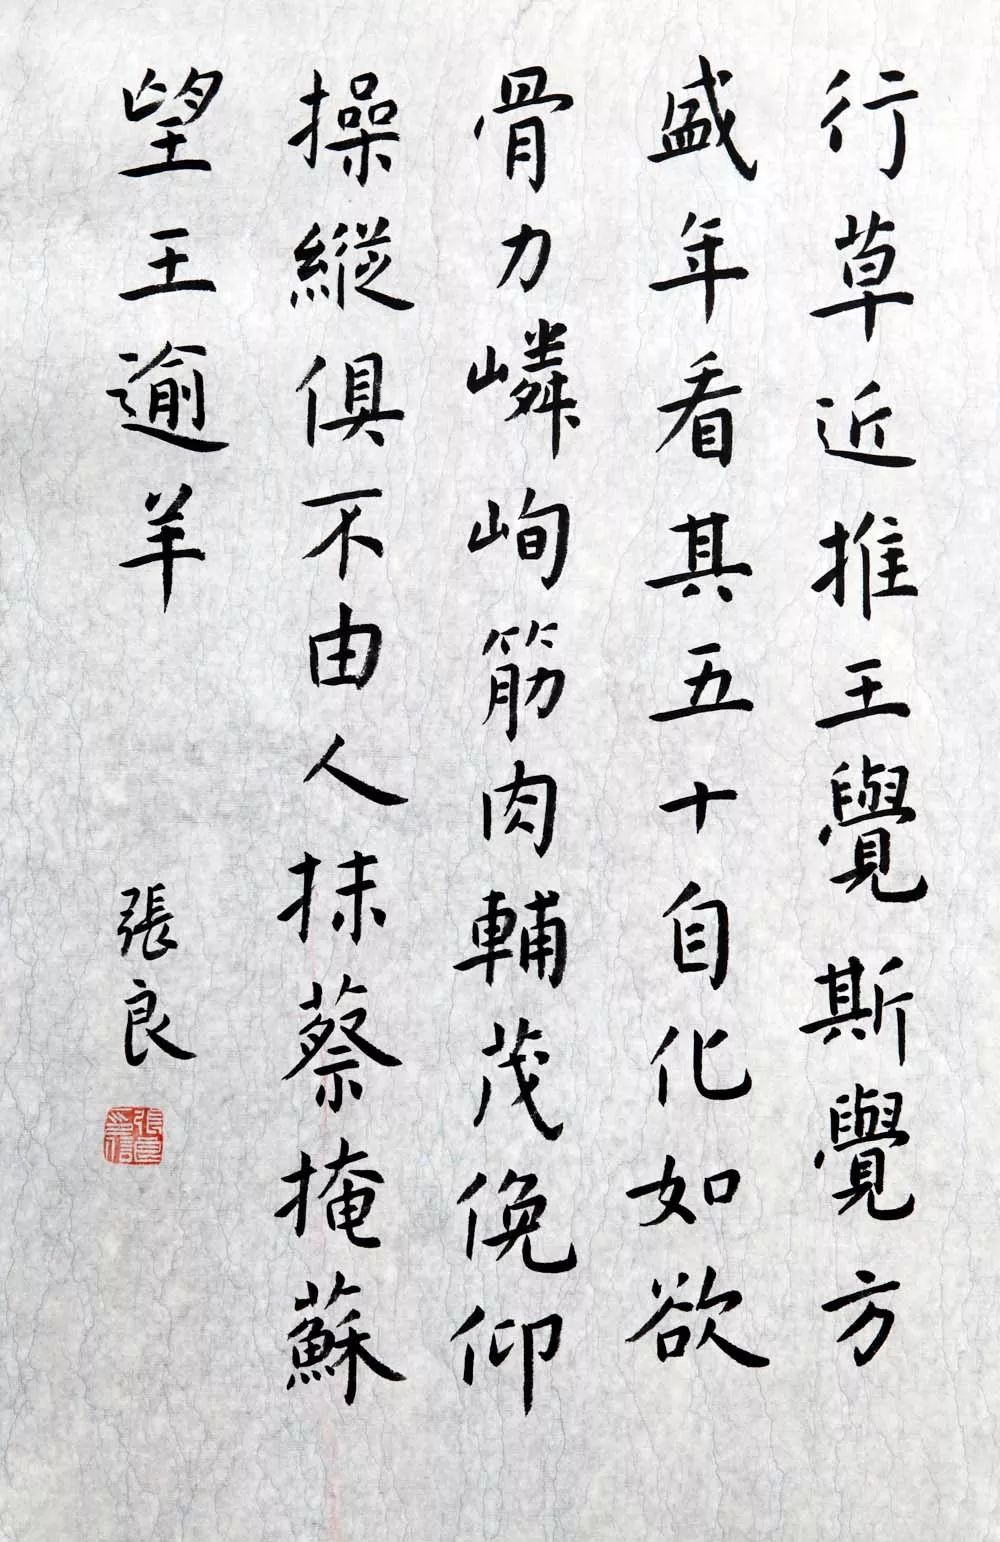 行草近推王覺斯覺方
盛年看其五十自化如欲
骨力嶙峋筋肉輔茂俛仰
操縱俱不由人抹蔡掩蘇
望王逾羊
張良